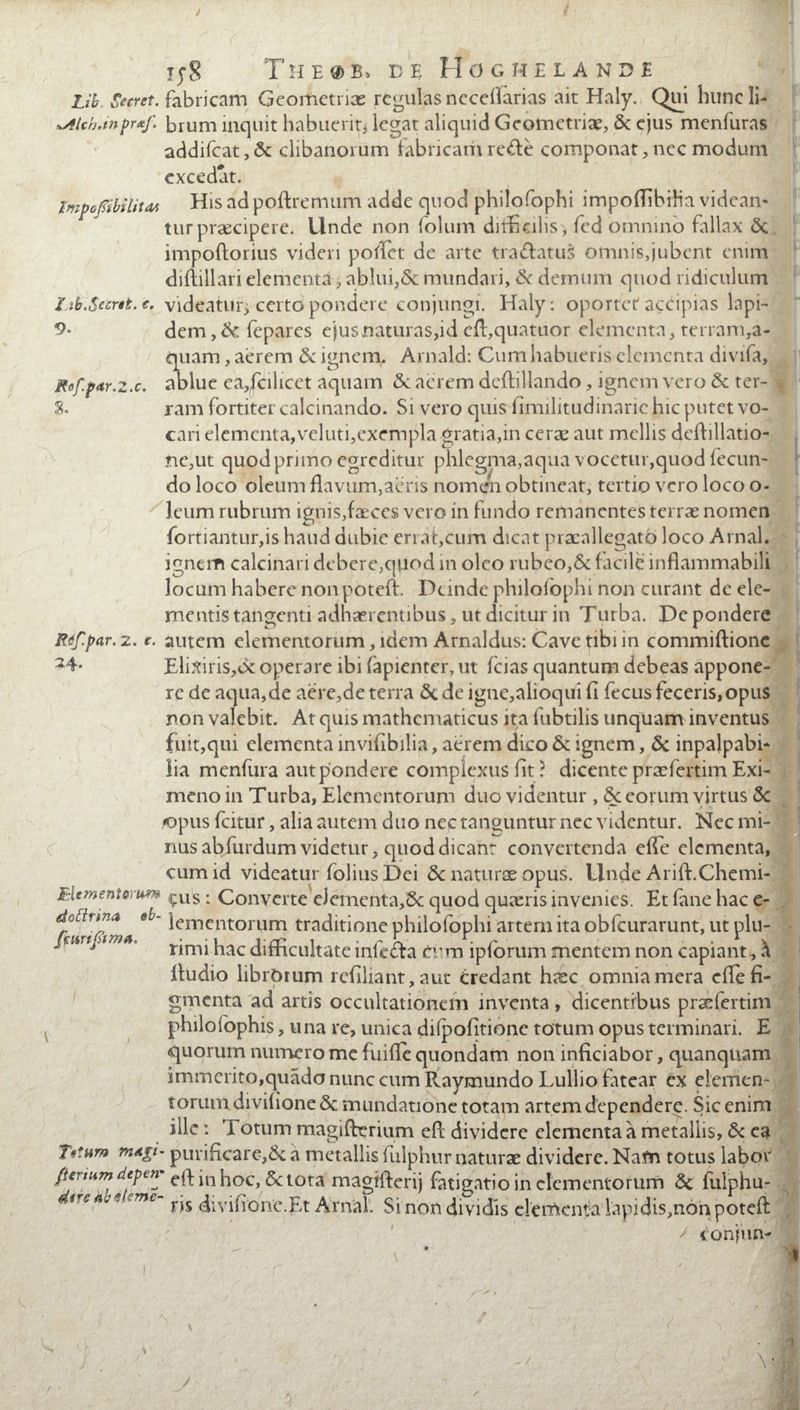 158 THEOB. DE HOGHELANDE
Lib. Secret. fabricam Geometriæ regulas necessarias ait Haly. Qui hunc li-
Alch. in præf. brum inquit habuerit, legat aliquid Geometriæ, & ejus mensuras
addiscat, & clibanorum fabricam rectè componat, nec modum
excedat.
Impossibilitas His ad postremum adde quod philosophi impossibilia videan-
tur præcipere. Unde non solum difficilis, sed omnino fallax &
impostorius videri posset de arte tractatus omnis, jubent enim
distillari elementa, ablui, & mundari, & demum quod ridiculum
Lib. Secret. c. videatur, certo pondere conjungi. Haly: oportet accipias lapi-
9. dem, & separes ejus naturas, id est, quatuor elementa, terram, a-
quam, aërem & ignem. Arnald: Cum habueris elementa divisa,
Ros. par. 2. c. ablue ea, scilicet aquam & aërem destillando, ignem vero & ter-
8. ram fortiter calcinando. Si vero quis similitudinarie hic putet vo-
cari elementa, veluti, exempla gratia, in ceræ aut mellis destillatio-
ne, ut quod primo egreditur phlegma, aqua vocetur, quod secun-
do loco oleum flavum, aëris nomen obtineat, tertio vero loco o-
leum rubrum ignis, fæces vero in fundo remanentes terræ nomen
sortiantur, is haud dubie errat, cum dicat præallegato loco Arnal.
ignem calcinari debere, quod in oleo rubeo, & facilè inflammabili
locum habere non potest. Deinde philosophi non curant de ele-
mentis tangenti adhærentibus, ut dicitur in Turba. De pondere
Ros. par. 2. c. autem elementorum, idem Arnaldus: Cave tibi in commistione
24. Elixiris, & operare ibi sapienter, ut scias quantum debeas appone-
re de aqua, de aëre, de terra & de igne, alioqui si secus feceris, opus
non valebit. At quis mathematicus ita subtilis unquam inventus
fuit, qui elementa invisibilia, aërem dico & ignem, & inpalpabi-
lia mensura aut pondere complexus sit? dicente præsertim Exi-
meno in Turba, Elementorum duo videntur, & eorum virtus &
opus scitur, alia autem duo nec tanguntur nec videntur. Nec mi-
nus absurdum videtur, quod dicant convertenda esse elementa,
cum id videatur solius Dei & naturæ opus. Unde Arist. Chemi-
Elementorum cus: Converte elementa, & quod quæris invenies. Et sane hac e-
doctrina ob- lementorum traditione philosophi artem ita obscurarunt, ut plu-
scurissima. rimi hac difficultate infecta cum ipsorum mentem non capiant, à
studio librorum resiliant, aut credant hæc omnia mera esse fi-
gmenta ad artis occultationem inventa, dicentibus præsertim
philosophis, una re, unica dispositione totum opus terminari. E
quorum numero me fuisse quondam non inficiabor, quanquam
immerito, quãdo nunc cum Raymundo Lullio fatear ex elemen-
torum divisione & mundatione totam artem dependere. Sic enim
ille: Totum magisterium est dividere elementa à metallis, & ea
Totum magi- purificare, & à metallis sulphur naturæ dividere. Nam totus labor
sterium depen- est in hoc, & tota magisterij fatigatio in elementorum & sulphu-
dere ab elemē- ris divisione. Et Arnal. Si non dividis elementa lapidis, non potest
conjun-